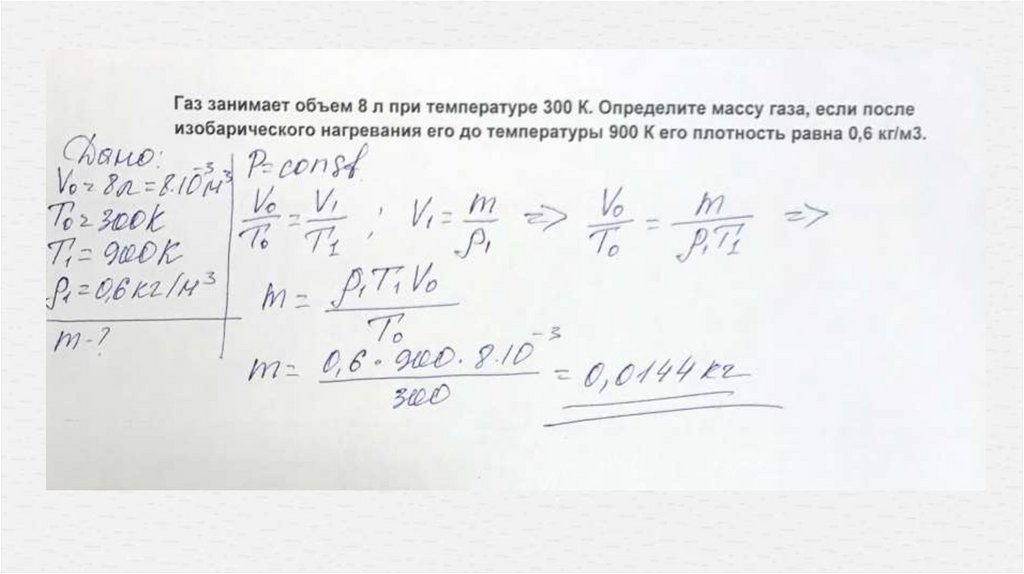 Газ занимает объем 8 л при температуре 300 К. Определите массу газа, если после
изобарического нагревания его до температуры 900 К его плотность равна 0,6 кг/м3.
Дано:
V₀ = 8л = 8·10⁻³м³
T₀ = 300К
T₁ = 900К
ρ₁ = 0,6 кг/м³
m - ?
P = const
V₀/T₀ = V₁/T₁ ; V₁ = m/ρ₁ => V₀/T₀ = m/ρ₁T₁ =>
m = ρ₁T₁V₀/T₀
m = 0,6·900·8·10⁻³/300 = 0,0144 кг